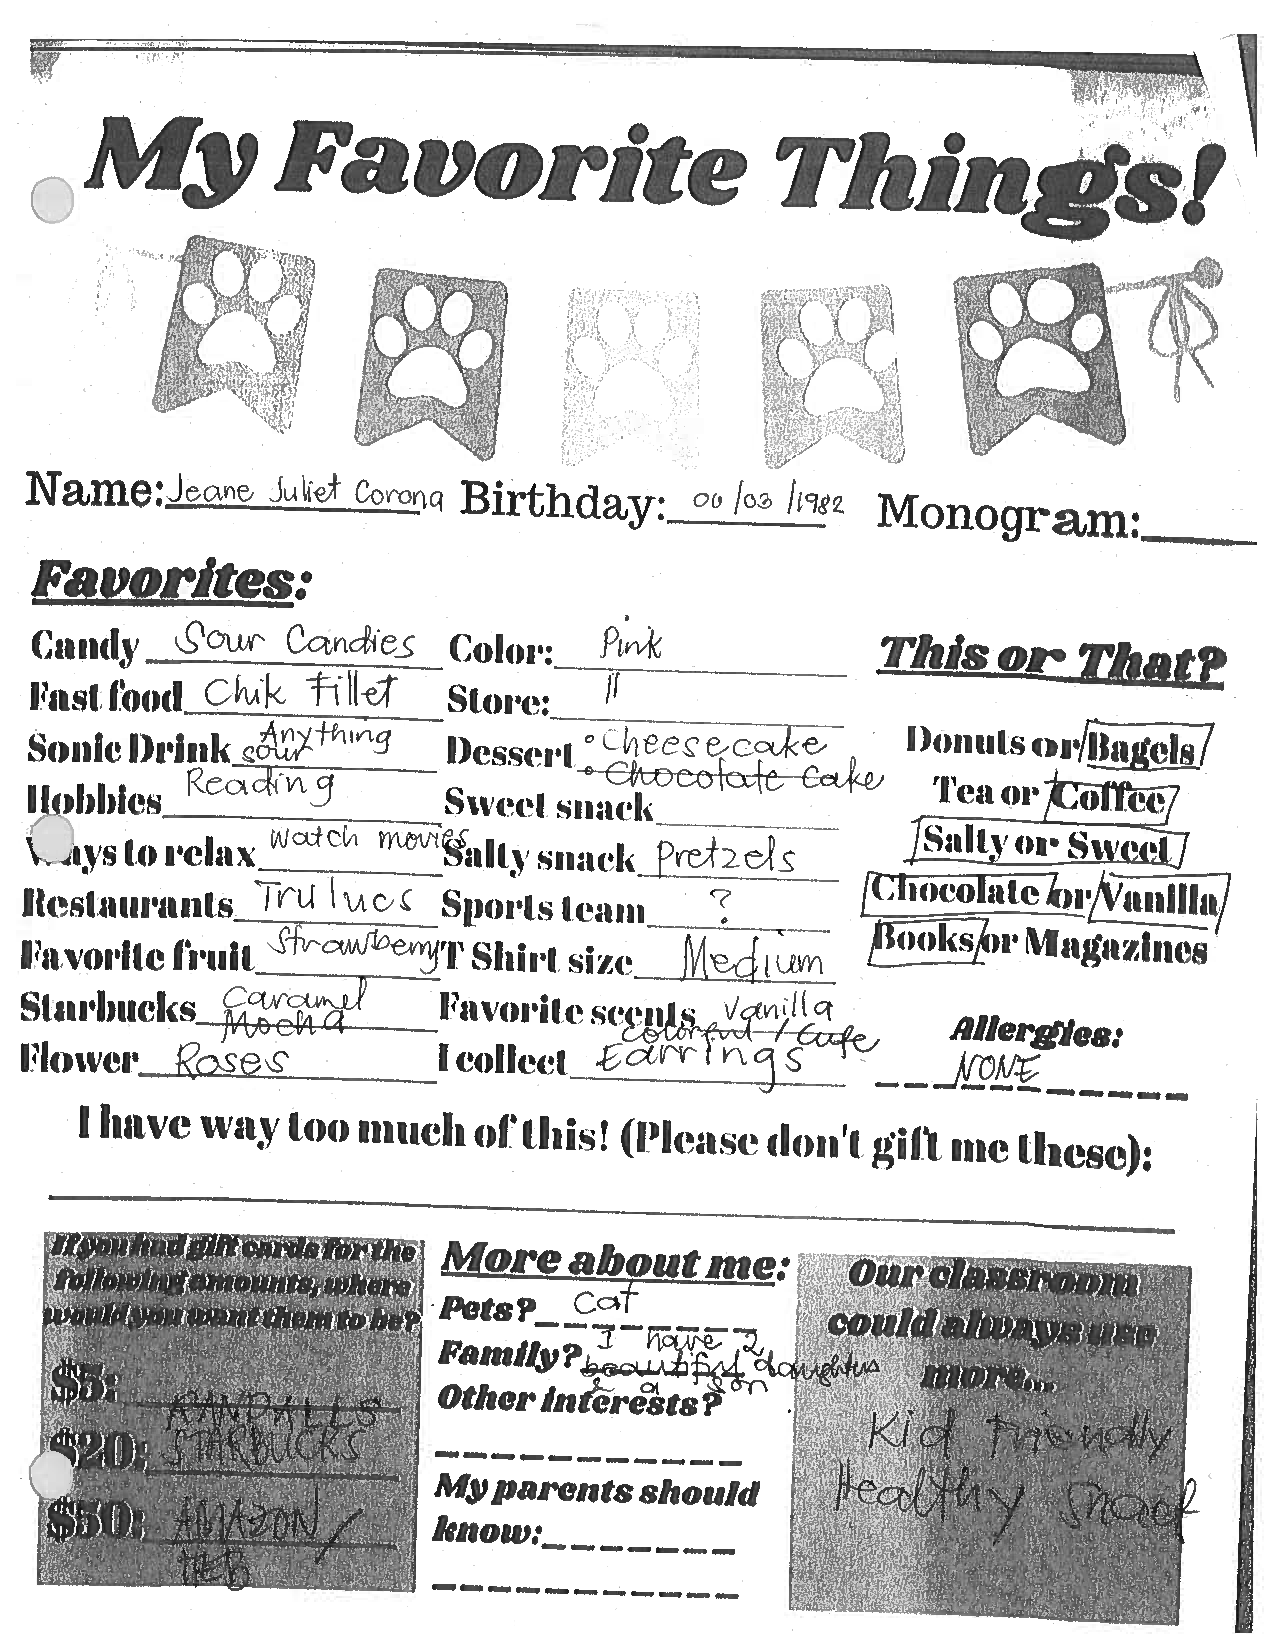 My Favorite Things!
Name: Jeane Juliet Corona Birthday: 00/03/1982 Monogram:
Favorites:
Candy Sour Candies Color: Pink
Fast food Chik Fillet Store: "
Sonic Drink Anything sour Dessert Cheesecake
Chocolate Cake
Hobbies Reading Sweet snack
Ways to relax Watch movies Salty snack Pretzels
Restaurants Trulucs Sports team ?
Favorite fruit Strawberry T Shirt size Medium
Starbucks Caramel Mocha Favorite scents Vanilla
Flower Roses I collect Colorful / Cute Earrings
This or That?
Donuts or Bagels
Tea or Coffee
Salty or Sweet
Chocolate or Vanilla
Books or Magazines
Allergies:
NONE
I have way too much of this! (Please don't gift me these):
If you had gift cards for the
following amounts, where
would you want them to be?
$5: RANDALLS
$20: STARBUCKS
$50: AMAZON /
HEB
More about me:
Pets? Cat
Family? I have 2
beautiful daughters
& a son
Other interests?
My parents should
know:
Our classroom
could always use
more...
Kid Friendly
Healthy